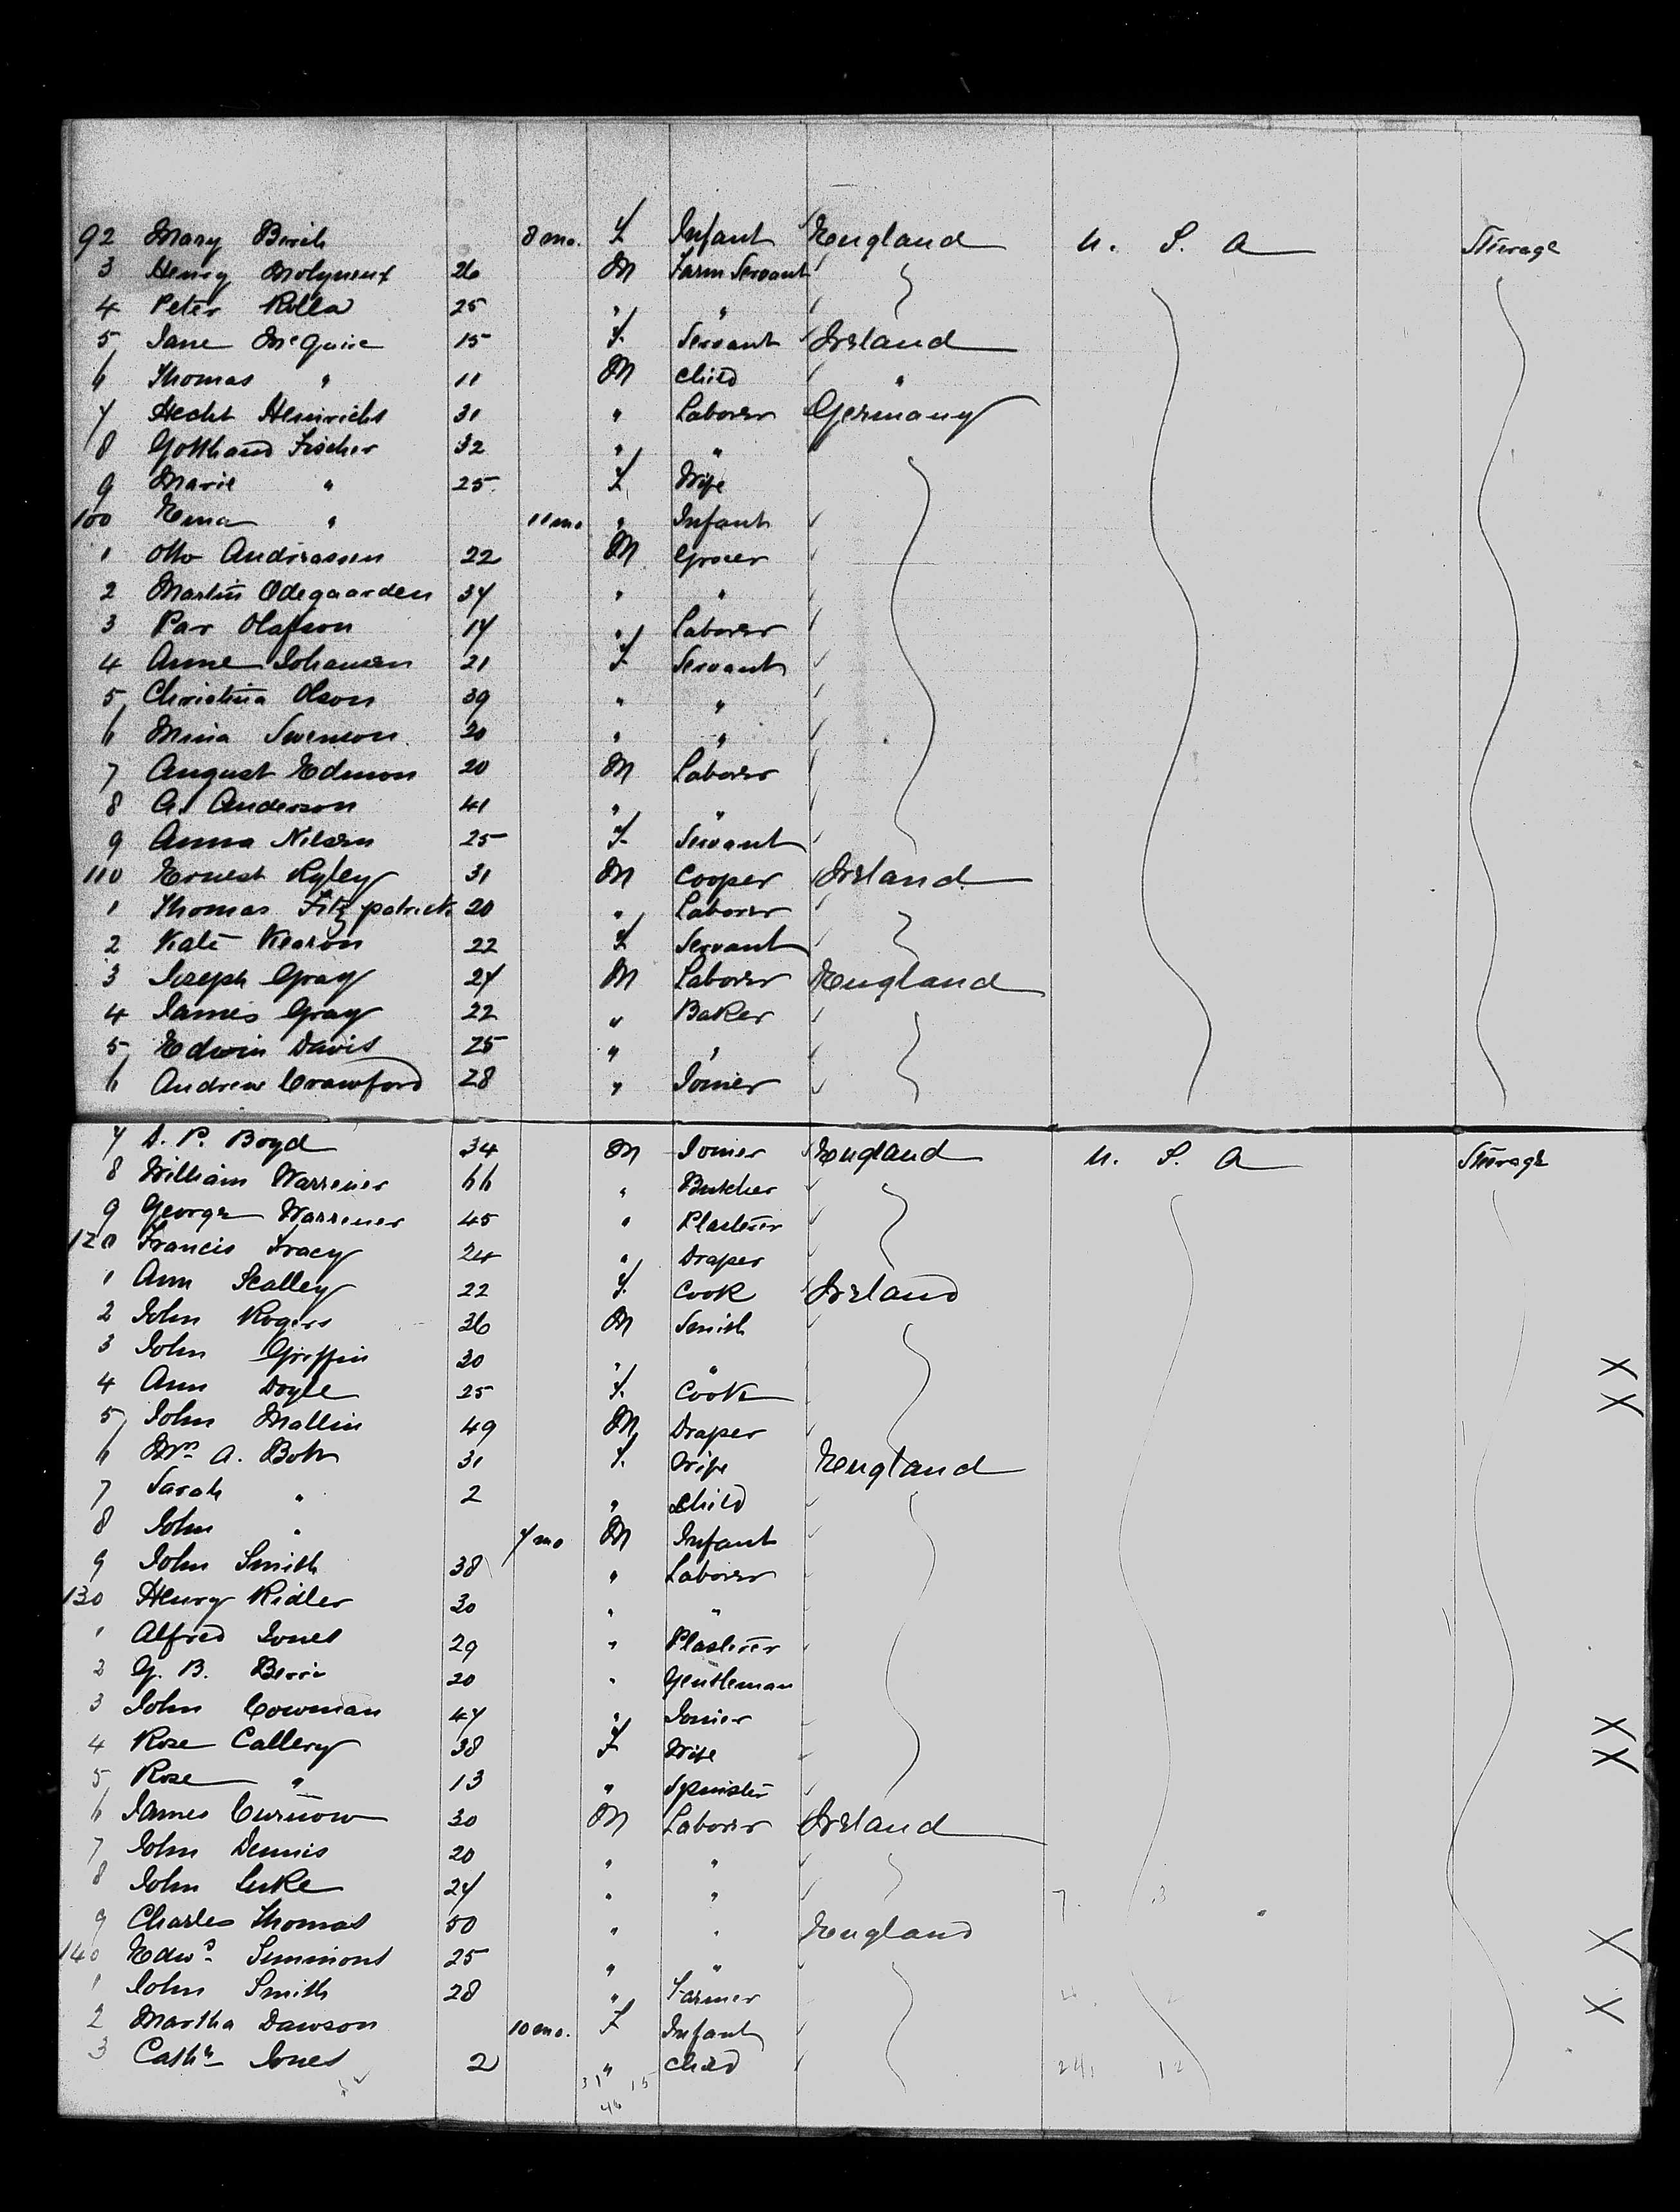 92 Mary Birch 8 mo. F Infant England U. S. A Steerage
3 Henry Molyneux 26 M Farm Servant
4 Peter Rolla 25 " "
5 Jane McGuire 15 F. Servant Ireland
6 Thomas " 11 M Child "
7 Hecht Heinrichs 31 " Laborer Germany
8 Gotthard Fischer 32 " "
9 Marie " 25 F Wife
100 Ema " 11 mo " Infant
1 Otto Andreassen 22 M Grocer
2 Martin Odegaarden 37 " "
3 Par Olafson 17 " Laborer
4 Anne Johansen 21 F Servant
5 Christina Olson 39 " "
6 Mina Swenson 20 " "
7 August Edmon 20 M Laborer
8 A. Anderson 41 " "
9 Anna Nilsen 25 F Servant
110 Ernest Ryley 31 M Cooper Ireland
1 Thomas Fitzpatrick 20 " Laborer
2 Kate Kearon 22 F Servant
3 Joseph Gray 27 M Laborer England
4 James Gray 22 " Baker
5 Edwin Davis 25 " "
6 Andrew Crawford 28 " Joiner
7 D. P. Boyd 34 M Joiner England U. S. A Steerage
8 William Warrener 66 " Butcher
9 George Warrener 45 " Plasterer
120 Francis Tracy 24 " Draper
1 Ann Scalley 22 F. Cook Ireland
2 John Rogers 36 M Smith
3 John Griffin 30 " " X
4 Ann Doyle 25 F. Cook X
5 John Mallin 49 M Draper
6 Mrs A. Bott 31 F. Wife England
7 Sarah " 2 " Child
8 John " 7 mo M Infant
9 John Smith 38 " Laborer
130 Henry Ridler 30 " "
1 Alfred Jones 29 " Plasterer
2 G. B. 20 " Gentleman
3 John Cowman 47 " Joiner X
4 Rose Callery 38 F Wife X
5 Rose " 13 " Spinster
6 James Curnow 30 M Laborer Ireland
7 John Dennis 20 " "
8 John Luke 27 " "
9 Charles Thomas 50 " " England X
140 Edwd Simmons 25 " "
1 John Smith 28 " Farmer X
2 Martha Dawson 10 mo. F Infant
3 Cathn Jones 2 " Child
31 15
46